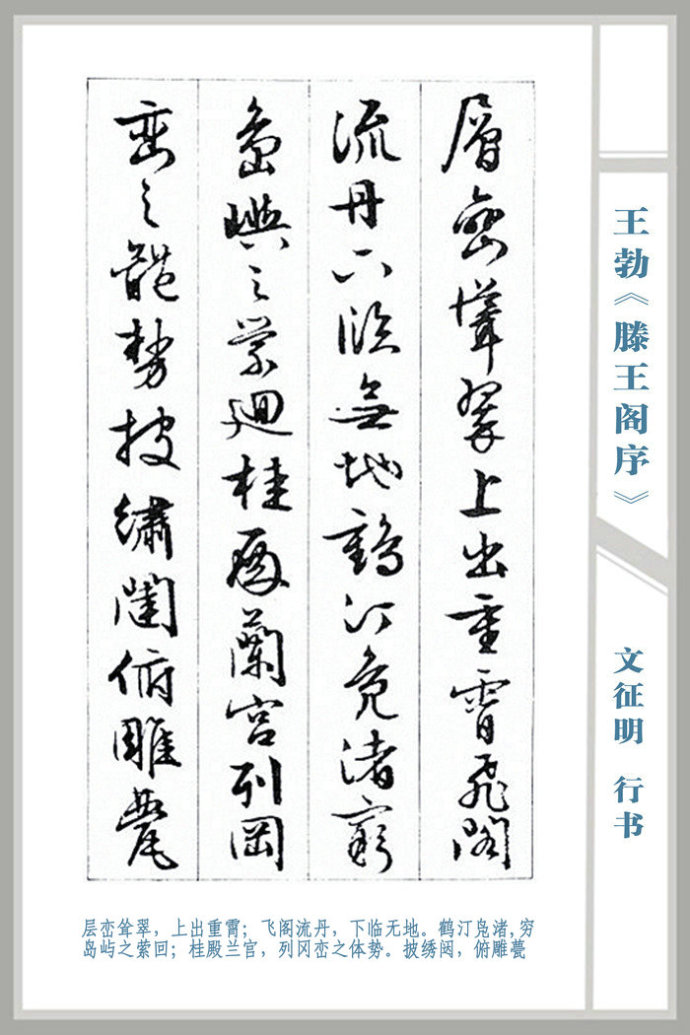 王勃《滕王阁序》
文征明 行书
層巒聳翠上出重霄飛閣
流丹下臨無地鶴汀鳧渚窮
島嶼之縈迴桂殿蘭宮列岡
巒之體勢披繡闥俯雕甍
层峦耸翠，上出重霄；飞阁流丹，下临无地。鹤汀凫渚,穷
岛屿之萦回；桂殿兰官，列冈峦之体势。披绣闼，俯雕甍